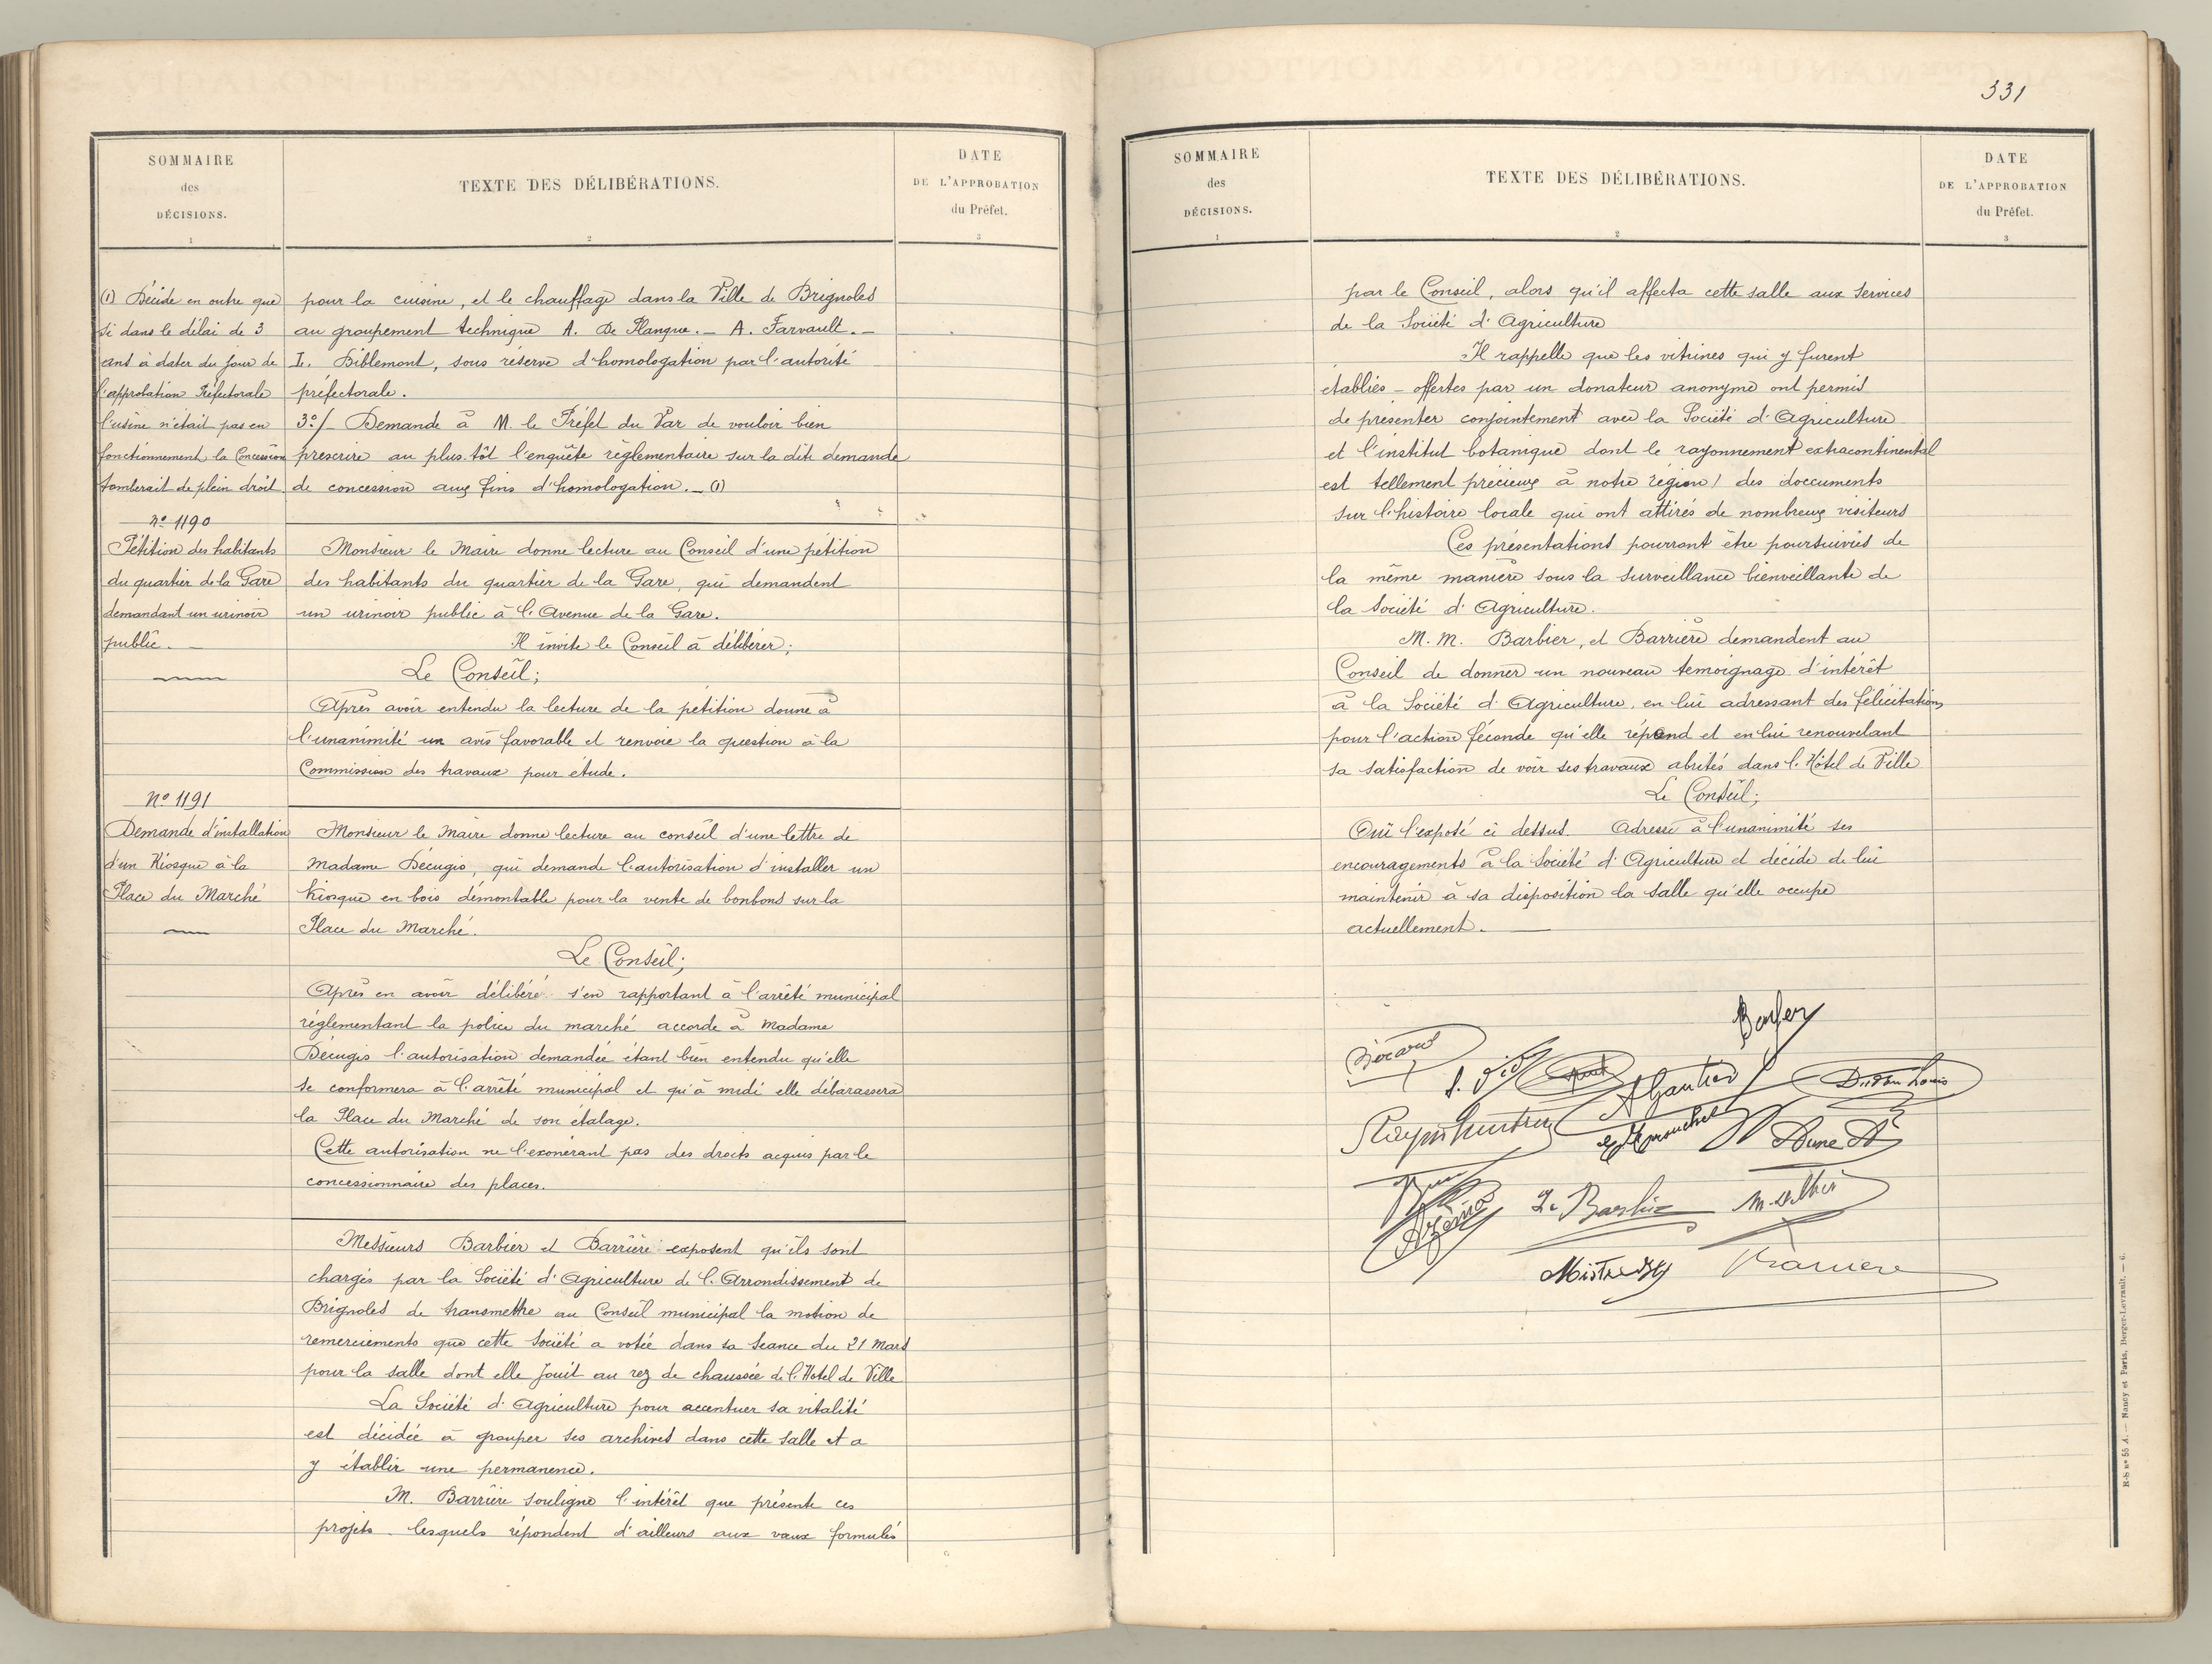 SOMMAIRE
des
DÉCISIONS.
1
TEXTE DES DÉLIBÉRATIONS.
2
DATE
DE L'APPROBATION
du Préfet.
3
(1) Décide en outre que
si dans le délai de 3
ans à dater du jour de
l'approbation Préfectorale
l'usine n'était pas en
fonctionnement la Concession
tomberait de plein droit.
pour la cuisine, et le chauffage dans la Ville de Brignoles
au groupement technique A. De Plangue. — A. Farvault. —
L. Biblemont, sous réserve d'homologation par l'autorité
préfectorale.
3º/- Demande à M. le Préfet du Var de vouloir bien
prescrire au plus-tôt l'enquête règlementaire sur la dite demande
de concession aux fins d'homologation. — (1)
Nº 1190
Pétition des habitants
du quartier de la Gare
demandant un urinoir
public. —
Monsieur le Maire donne lecture au Conseil d'une pétition
des habitants du quartier de la Gare, qui demandent
un urinoir public à l'Avenue de la Gare.
Il invite le Conseil à délibérer;
Le Conseil;
Après avoir entendu la lecture de la pétition donne à
l'unanimité un avis favorable et renvoie la question à la
Commission des travaux pour étude.
Nº 1191
Demande d'installation
d'un Kiosque à la
Place du Marché
Monsieur le Maire donne lecture au conseil d'une lettre de
Madame Décugis, qui demande l'autorisation d'installer un
Kiosque en bois démontable pour la vente de bonbons sur la
Place du Marché.
Le Conseil;
Après en avoir délibéré s'en rapportant à l'arrêté municipal
réglementant la police du marché accorde à Madame
Décugis l'autorisation demandée étant bien entendu qu'elle
se conformera à l'arrêté municipal et qu'à midi elle débarassera
la Place du Marché de son étalage.
Cette autorisation ne l'exonérant pas des droits acquis par le
concessionnaire des places.
Messieurs Barbier et Barrière exposent qu'ils sont
chargés par la Société d'Agriculture de l'Arrondissement de
Brignoles de transmettre au Conseil municipal la motion de
remerciements que cette Société a votée dans sa Séance du 21 Mars
pour la salle dont elle jouit au rez de chaussée de l'Hotel de Ville
La Société d'Agriculture pour accentuer sa vitalité
est décidée à grouper ses archives dans cette salle et a
y établir une permanence.
M. Barrière souligne l'intérêt que présente ces
projets lesquels répondent d'ailleurs aux vœux formulés
331
SOMMAIRE
des
DÉCISIONS.
1
TEXTE DES DÉLIBÉRATIONS.
2
DATE
DE L'APPROBATION
du Préfet.
3
par le Conseil, alors qu'il affecta cette salle aux Services
de la Société d'Agriculture
Il rappelle que les vitrines qui y furent
établies - offertes par un donateur anonyme ont permis
de présenter conjointement avec la Société d'Agriculture
et l'institut botanique dont le rayonnement extracontinental
est tellement précieux à notre région) des documents
sur l'histoire locale qui ont attirés de nombreux visiteurs
Ces présentations pourront être poursuivies de
la même manière sous la surveillance bienveillante de
la Société d'Agriculture.
M. M. Barbier, et Barrière demandent au
Conseil de donner un nouveau témoignage d'intérêt
à la Société d'Agriculture, en lui adressant des félicitations
pour l'action féconde qu'elle répand et en lui renouvelant
sa satisfaction de voir ses travaux abrités dans l'Hôtel de Ville
Le Conseil;
Ouï l'exposé ci dessus. Adresse à l'unanimité ses
encouragements à la Société d'Agriculture et décide de lui
maintenir à sa disposition la salle qu'elle occupe
actuellement.
A Gautier
Barrière
R-S nº 55 A. — Nancy et Paris, Berger-Levrault. — 6.